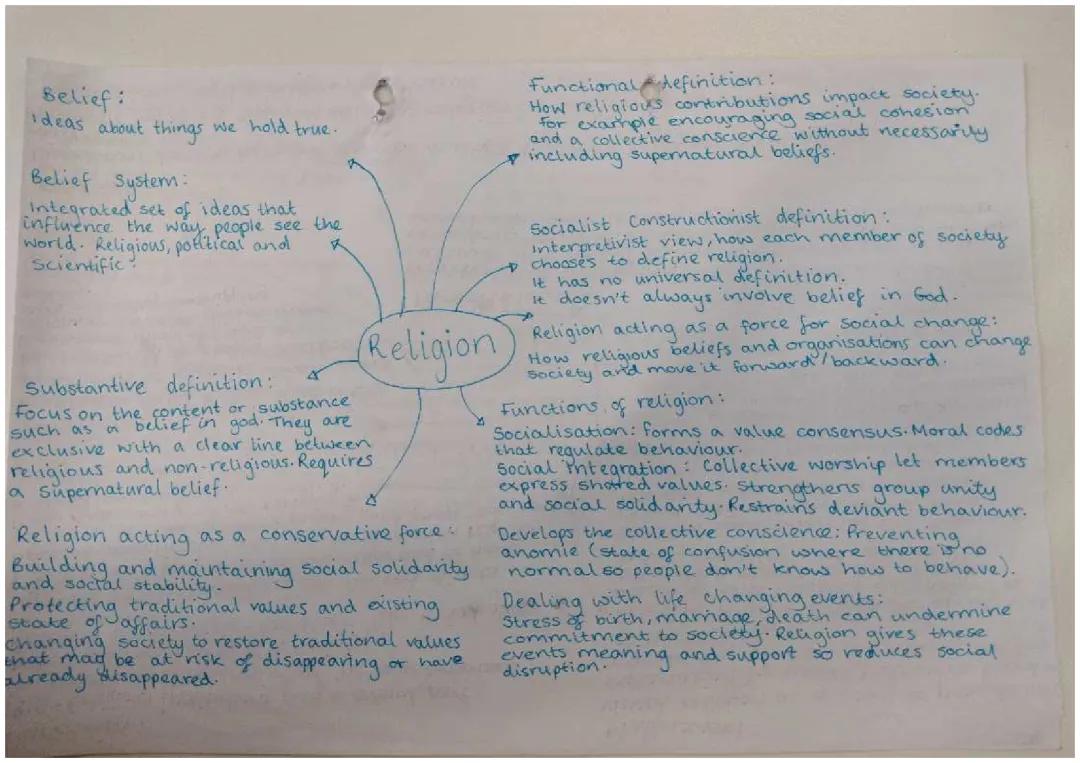 Belief:
ideas about things we hold true.
Belief System:
Integrated set of ideas that
influence the way people see the
world. Religious, political and
Scientific.
Substantive definition:
Focus on the content or substance
such as a belief in god. They are
exclusive with a clear line between
religious and non-religious. Requires
a supernatural belief.
Religion acting as a conservative force:
Building and maintaining social solidarity
and social stability.
Protecting traditional values and existing
state of affairs.
changing society to restore traditional values
that may be at risk of disappearing or have
already disappeared.
Religion
Functional definition:
How religious contributions impact society.
for example encouraging social cohesion
and a collective conscience without necessarily
including supernatural beliefs.
Socialist Constructionist definition:
Interpretivist view, how each member of society
chooses to define religion.
It has no universal definition.
It doesn't always involve belief in God.
Religion acting as a force for social change:
How religious beliefs and organisations can change
society and move it forward/backward.
Functions of religion:
Socialisation: forms a value consensus. Moral codes
that regulate behaviour.
Social Integration: Collective worship let members
express shared values. Strengthens group unity
and social solidarity. Restrains deviant behaviour.
Develops the collective conscience: Preventing
anomie (state of confusion where there is no
normal so people don't know how to behave).
Dealing with life changing events:
Stress of birth, marriage, death can undermine
commitment to society. Religion gives these
events meaning and support so reduces social
disruption.